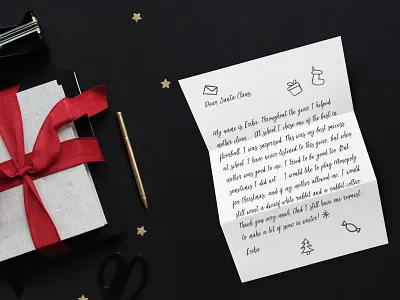 Dear Santa Claus,
My name is Erika. Throughout the year I helped
mother clean... At school I chose one of the best in
floorball. I was surprised. This was my best success
at school. I have never listened to this year, but when
mother was good to me, I tried to be good too. But
sometimes I did not... I would like to play Monopoly
for Christmas, and if my mother allowed me, I would
still want a dwarf white rabbit and a rabbit collar.
Thank you very much. And I still have one request -
to make a lot of snow in winter!
Erika